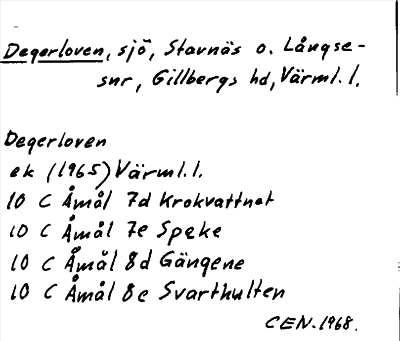 Degerloven, sjö, Stavnäs o. Långse-
snr, Gillbergs hd, Värml. l.
Degerloven
ek (1965) Värml. l.
10 C Åmål 7d Krokvattnet
10 C Åmål 7e Speke
10 C Åmål 8d Gängene
10 C Åmål 8e Svarthulten
CEN. 1968.